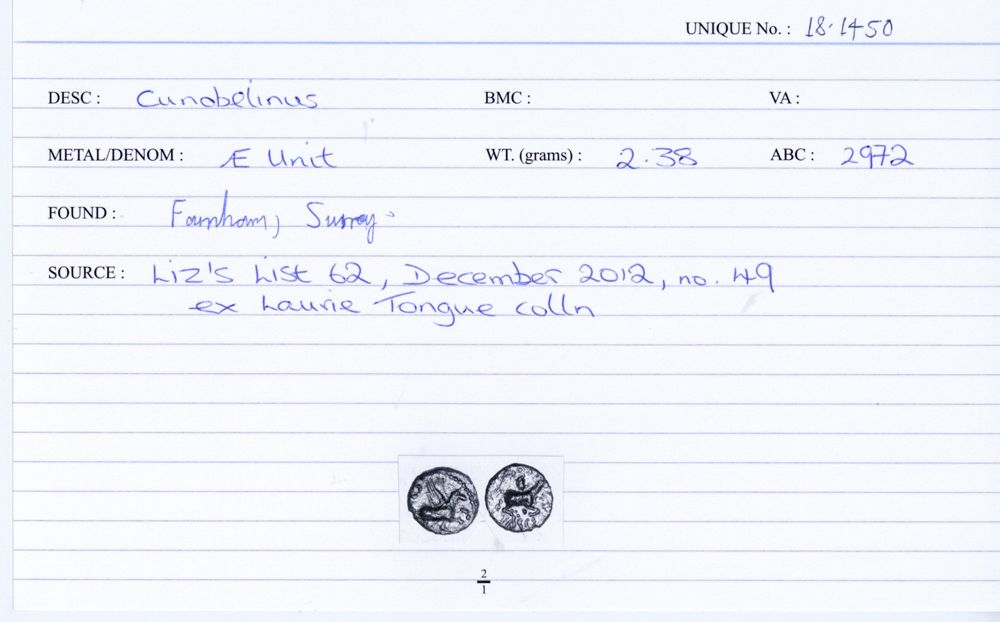 UNIQUE No. : 18.1450
DESC : Cunobelinus BMC : VA :
METAL/DENOM : Æ Unit WT. (grams) : 2.38 ABC : 2972
FOUND : Farnham, Surrey.
SOURCE : Liz's List 62, December 2012, no. 49
ex Laurie Tongue colln
2
1